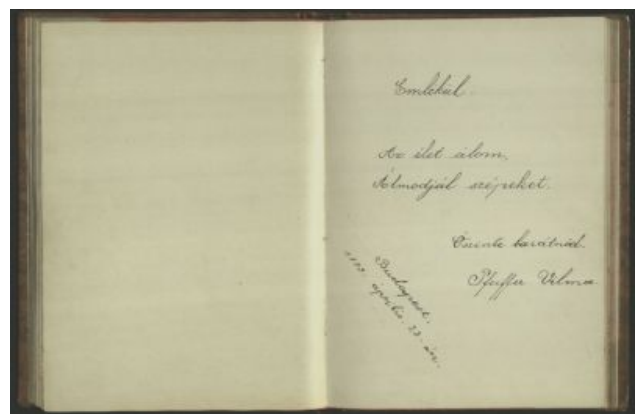 Emlékül.
Az élet álom,
Álmodjál szépeket.
Őszinte barátnéd
Pfeiffer Vilma
Budapest.
április. 23-án.